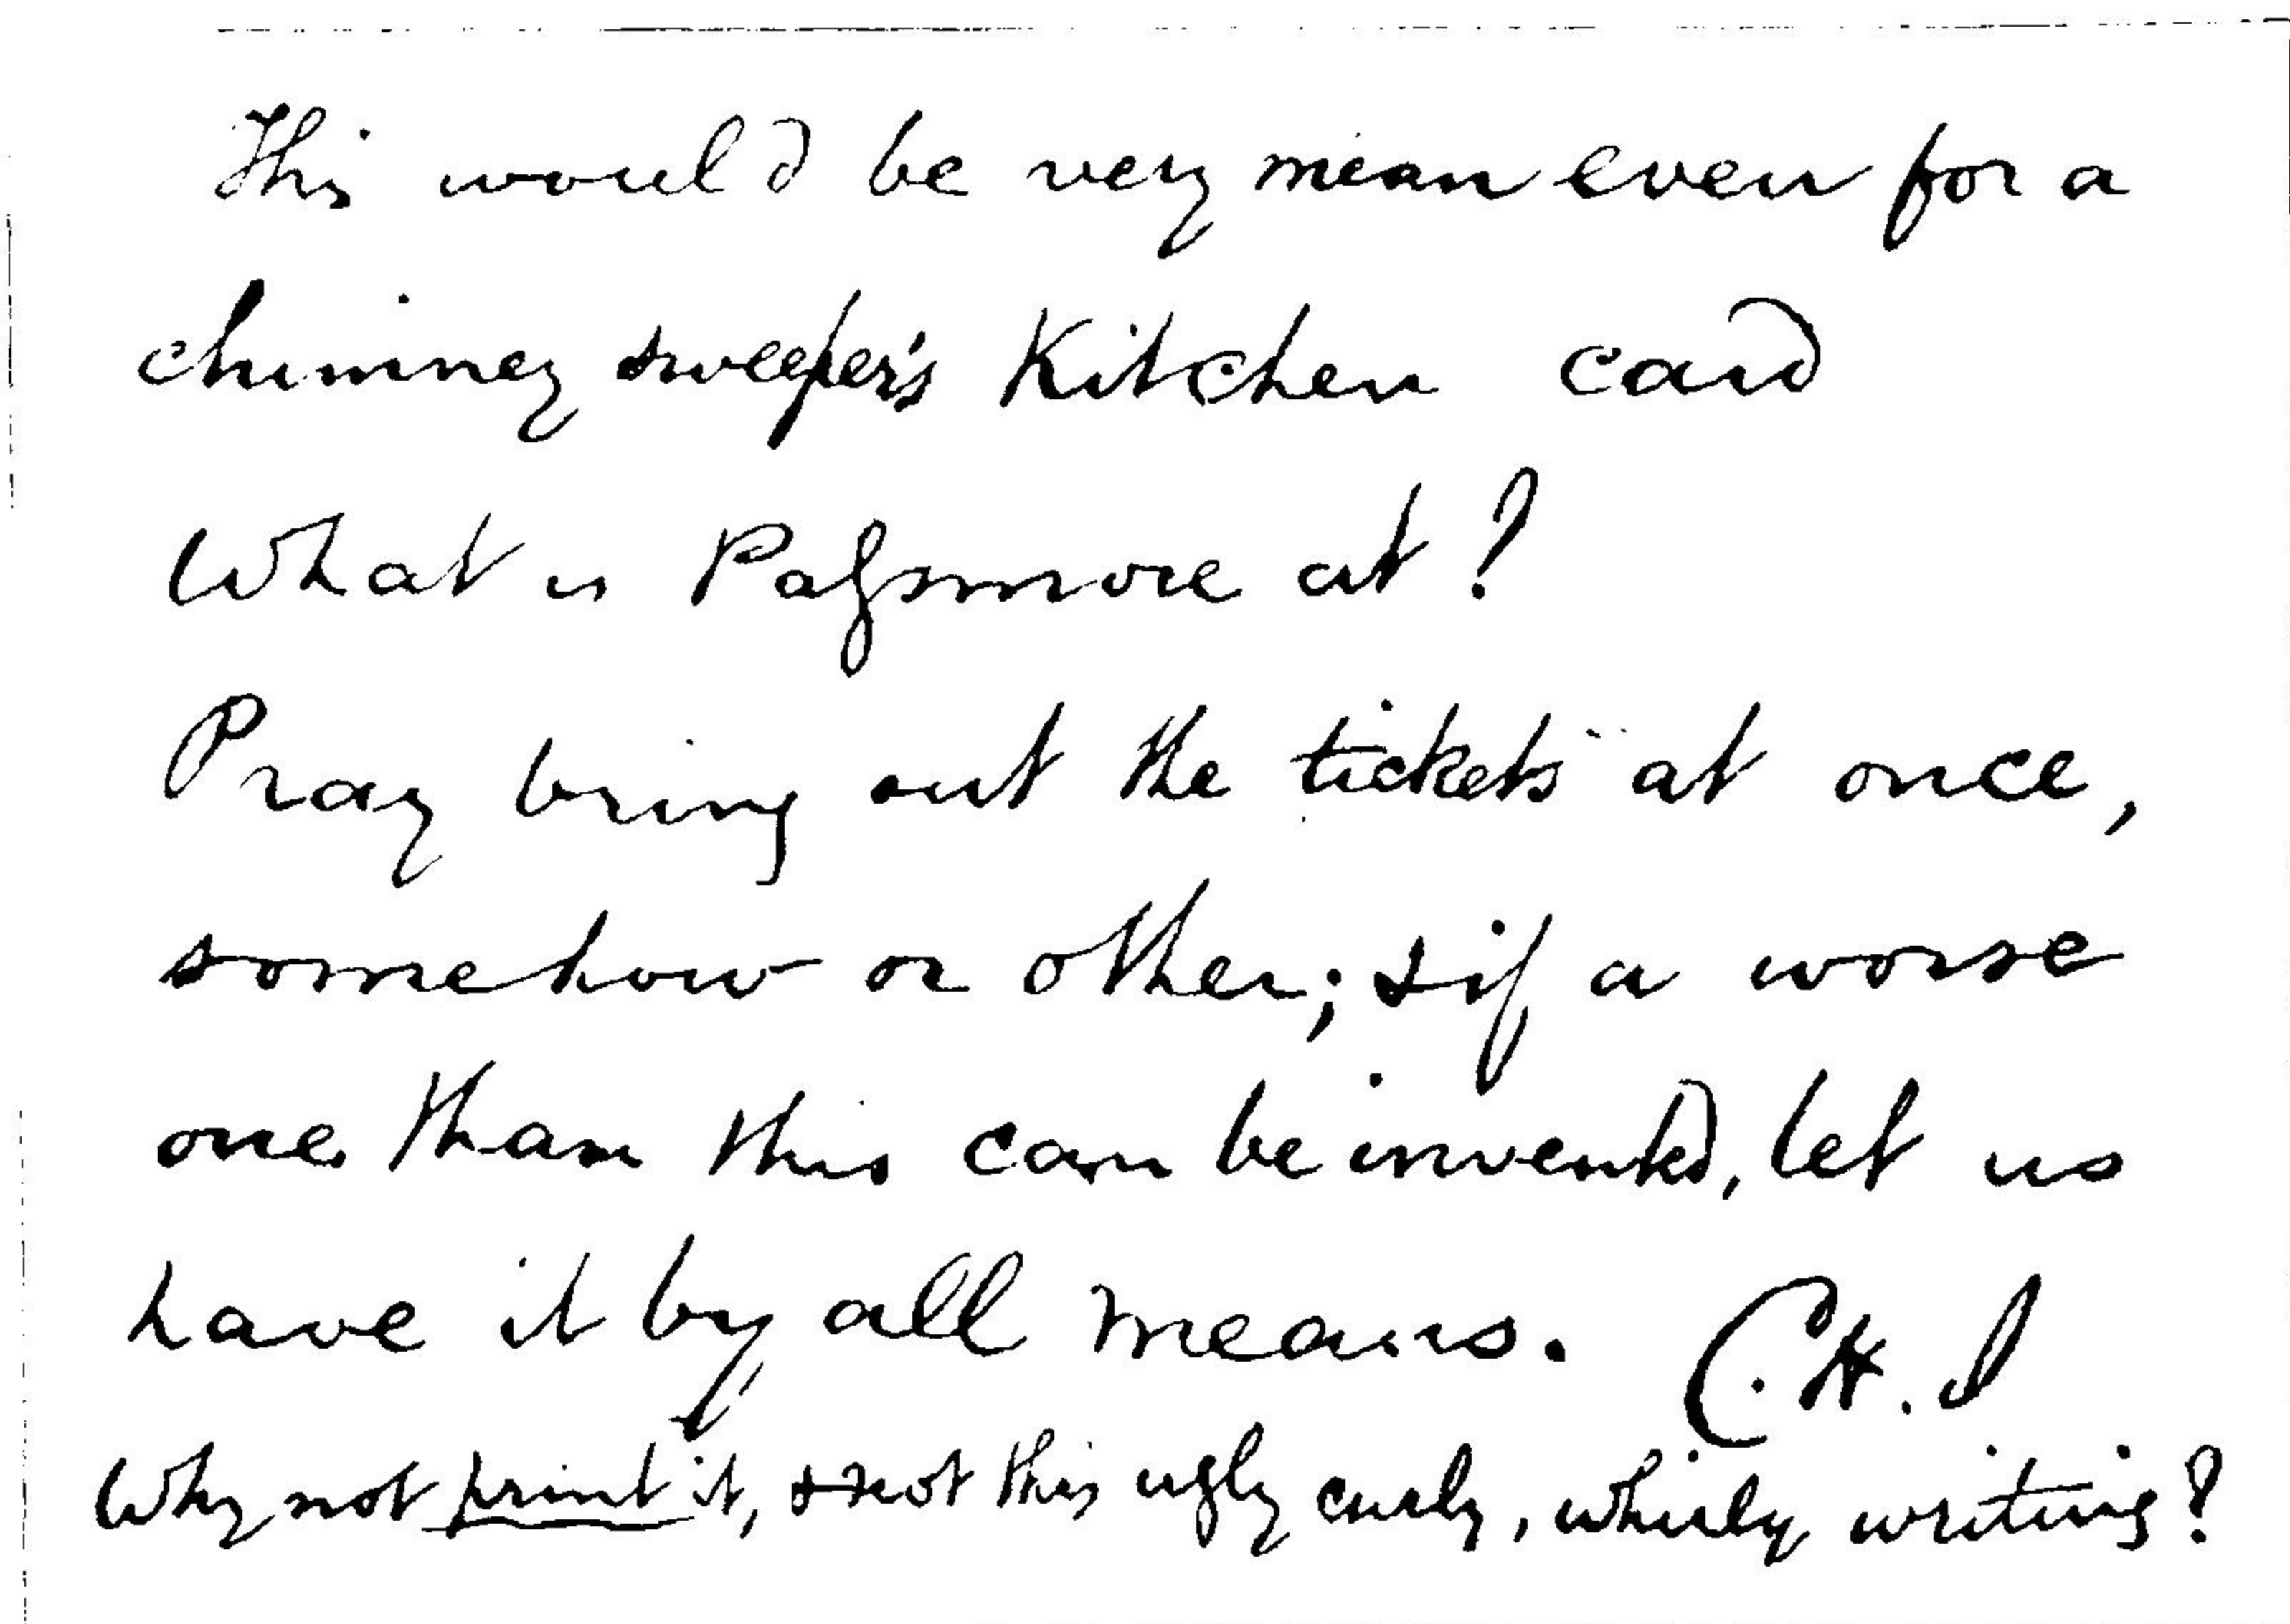 This would be very mean even for a
chimney sweeper's Kitchen card
What is Passmore at?
Pray bring out the tickets at once,
somehow or other; & if a worse
one than this can be invented, let us
have it by all means. C. H. S
Why not print it, & not this ugly curly, whirly writing?